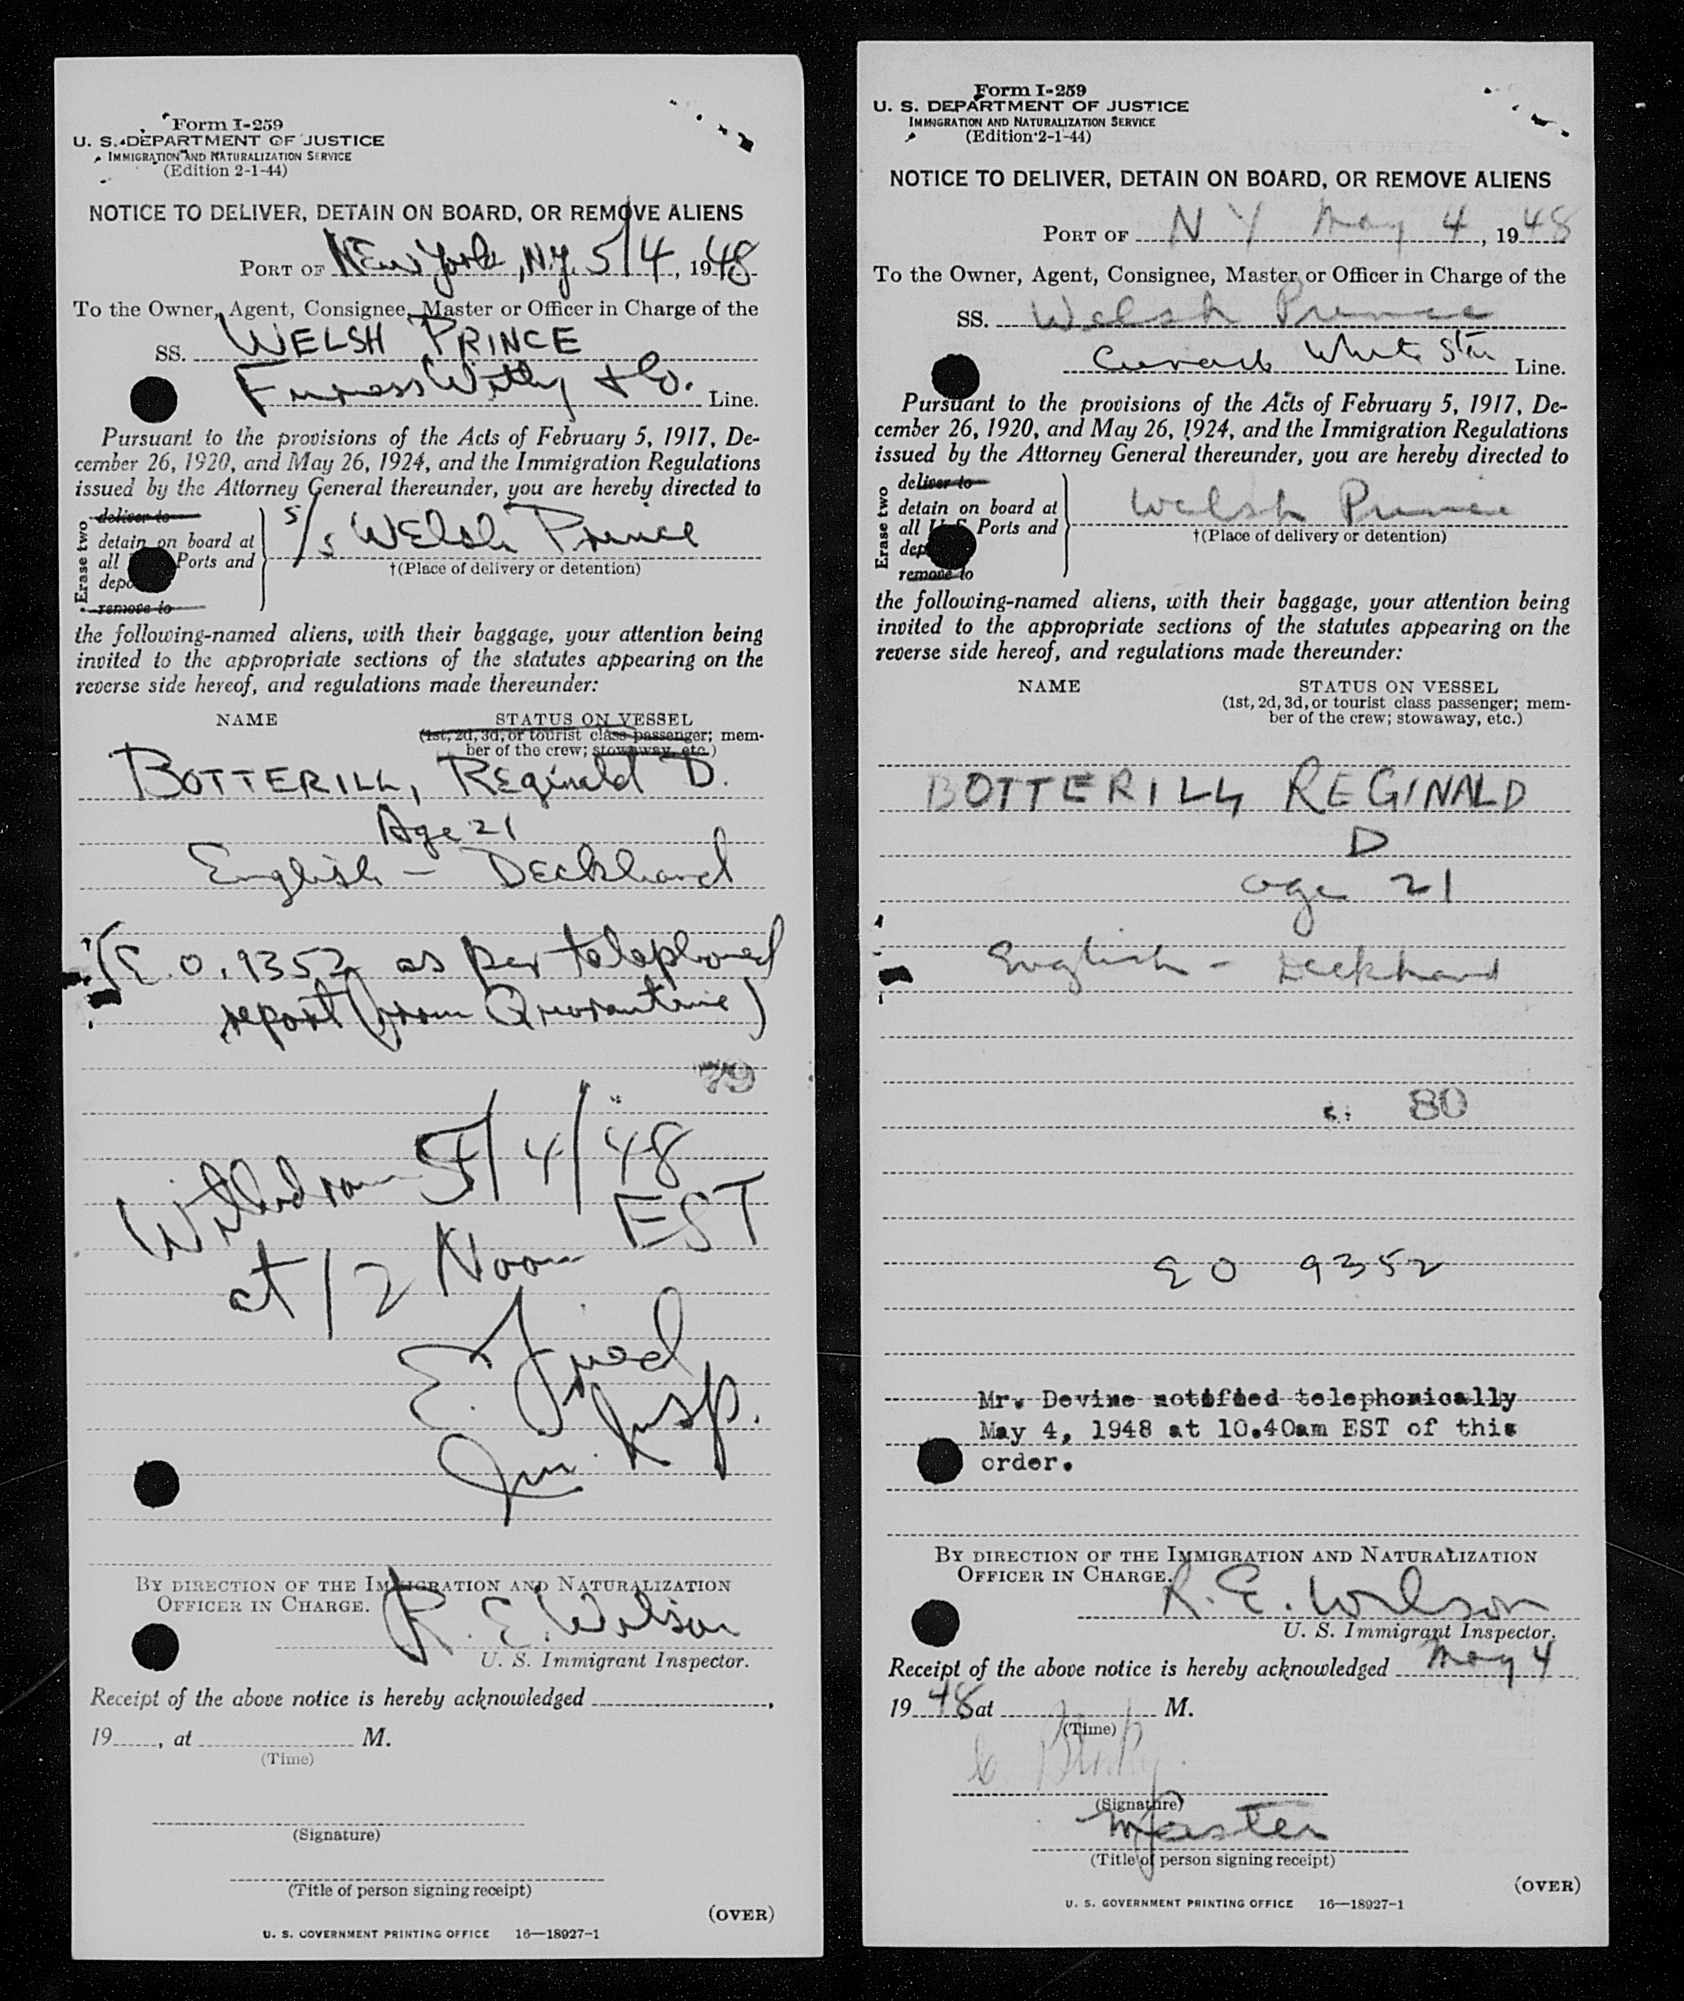 Form I-259
U. S. DEPARTMENT OF JUSTICE
IMMIGRATION AND NATURALIZATION SERVICE
(Edition 2-1-44)
NOTICE TO DELIVER, DETAIN ON BOARD, OR REMOVE ALIENS
PORT OF New York, N.Y. 5/4, 1948
To the Owner, Agent, Consignee, Master or Officer in Charge of the
SS. WELSH PRINCE
Furness Withy & Co. Line.
Pursuant to the provisions of the Acts of February 5, 1917, De-
cember 26, 1920, and May 26, 1924, and the Immigration Regulations
issued by the Attorney General thereunder, you are hereby directed to
Erase two
deliver to
detain on board at
all Ports and
depo
remove to
S/S Welsh Prince
†(Place of delivery or detention)
the following-named aliens, with their baggage, your attention being
invited to the appropriate sections of the statutes appearing on the
reverse side hereof, and regulations made thereunder:
NAME STATUS ON VESSEL
(1st, 2d, 3d, or tourist class passenger; mem-
ber of the crew; stowaway, etc.)
BOTTERILL, Reginald D.
Age 21
English - Deckhand
(E.O. 9352 as per telephoned
report from Quarantine)
79
Withdrawn 5/4/48
at 12 Noon EST
E. Fried
Im. Insp.
BY DIRECTION OF THE IMMIGRATION AND NATURALIZATION
OFFICER IN CHARGE.
R. E. Wilson
U. S. Immigrant Inspector.
Receipt of the above notice is hereby acknowledged
19 , at M.
(Time)
(Signature)
(Title of person signing receipt)
(OVER)
U. S. GOVERNMENT PRINTING OFFICE 16—18927-1
Form I-259
U. S. DEPARTMENT OF JUSTICE
IMMIGRATION AND NATURALIZATION SERVICE
(Edition 2-1-44)
NOTICE TO DELIVER, DETAIN ON BOARD, OR REMOVE ALIENS
PORT OF N Y May 4, 1948
To the Owner, Agent, Consignee, Master or Officer in Charge of the
SS. Welsh Prince
Cunard White Star Line.
Pursuant to the provisions of the Acts of February 5, 1917, De-
cember 26, 1920, and May 26, 1924, and the Immigration Regulations
issued by the Attorney General thereunder, you are hereby directed to
Erase two
deliver to
detain on board at
all U S Ports and
dep
remove to
Welsh Prince
†(Place of delivery or detention)
the following-named aliens, with their baggage, your attention being
invited to the appropriate sections of the statutes appearing on the
reverse side hereof, and regulations made thereunder:
NAME STATUS ON VESSEL
(1st, 2d, 3d, or tourist class passenger; mem-
ber of the crew; stowaway, etc.)
BOTTERILL REGINALD
D
age 21
English - Deckhand
80
EO 9352
Mr. Devine notified telephonically
May 4, 1948 at 10.40am EST of this
order.
BY DIRECTION OF THE IMMIGRATION AND NATURALIZATION
OFFICER IN CHARGE.
R. E. Wilson
U. S. Immigrant Inspector.
Receipt of the above notice is hereby acknowledged May 4
1948 at M.
(Time)
(Signature)
Master
(Title of person signing receipt)
(OVER)
U. S. GOVERNMENT PRINTING OFFICE 16—18927-1